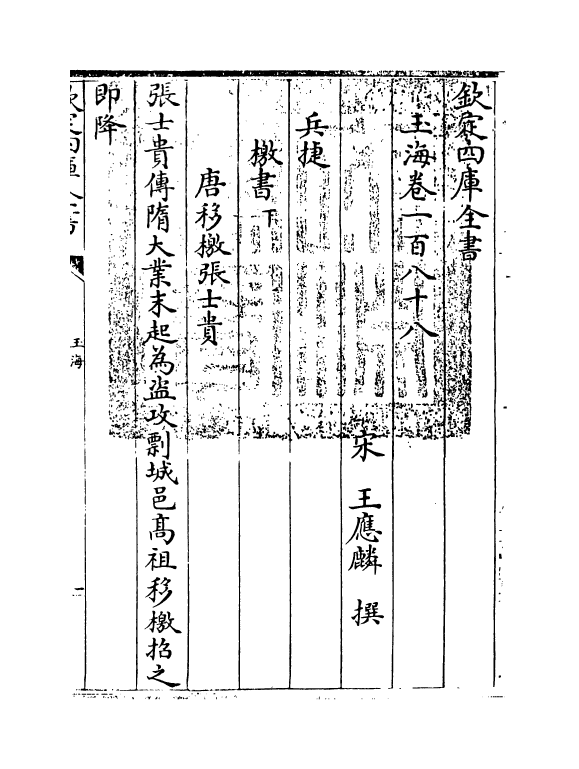 欽定四庫全書
玉海卷一百八十八
宋 王應麟 撰
兵捷
檄書下
唐移檄張士貴
張士貴傳隋大業末起為盜攻剽城邑髙祖移檄招之
即降
欽定四庫全書
玉海
一